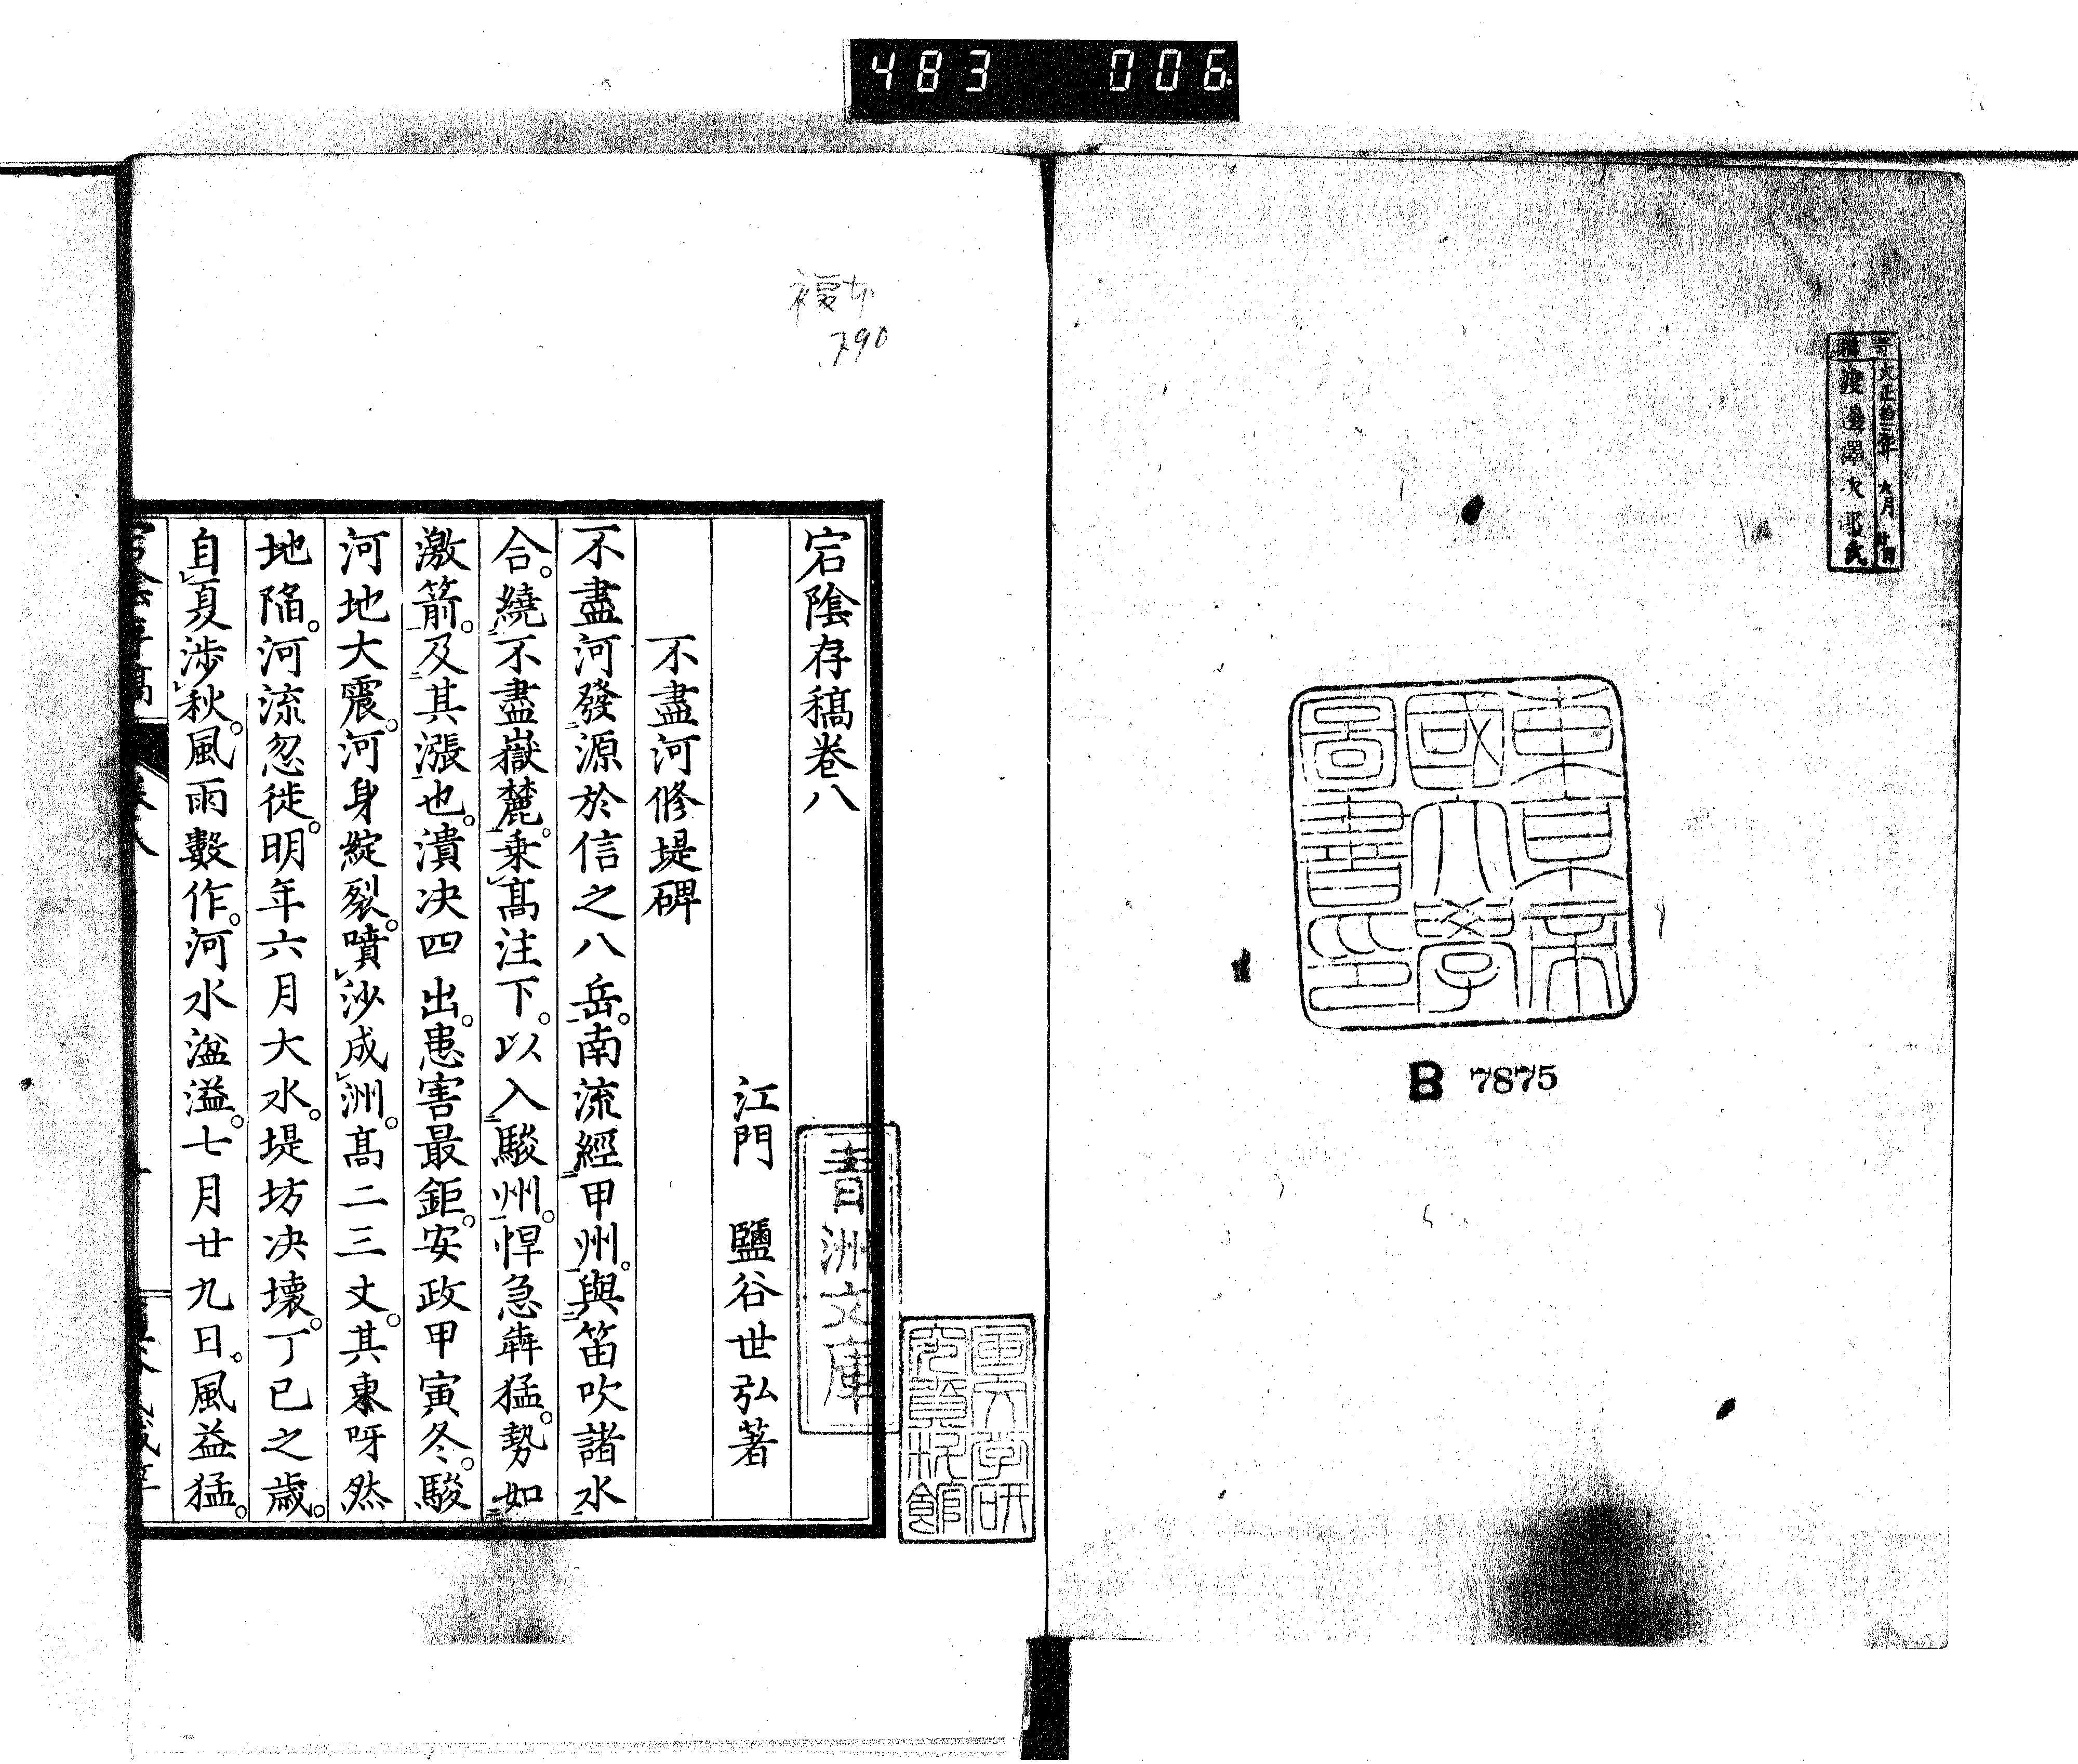 483 006
寄贈
大正 年 九月 日
渡邊澤次郎氏
東京帝
國大學
圖書印
B 7875
複本
790
國文学研
究資料館
青洲文庫
宕陰存稿卷八
江門 鹽谷世弘著
不盡河修堤碑
不盡河發源於信之八岳。南流經甲州。與笛吹諸水
合。繞不盡嶽麓。乗髙注下。以入駿州。悍急犇猛。勢如
激箭。及其漲也。潰決四出。患害最鉅。安政甲寅冬。駿
河地大震。河身綻裂。噴沙成洲。髙二三丈。其東呀然
地陷。河流忽徙。明年六月大水。堤坊决壊。丁已之歳。
自夏涉秋。風雨數作。河水湓溢。七月廿九日。風益猛。